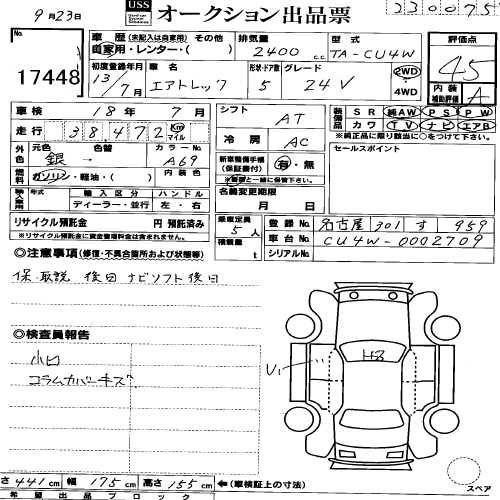 9月23日
USS オークション出品票
No.
17448
車歴 (未記入は自家用) その他
自家用・レンター・( )
排気量
2400 c.c.
型式
TA-CU4W
評価点
4.5
初度登録年月
13/7月
車名
エアトレック
形状・ドア数
5
グレード
24V
2WD
4WD
内装補助評価
A
車検 18年 7月
シフト
AT
装備品
SR 純AW PS PW
カワ TV ナビ エアB
※純正品に限り該当に○をつけて下さい。
走行 38472 Km マイル
外色
元色 色替
銀 →
カラーNo.
A69
冷房
AC
セールスポイント
燃料
ガソリン・軽油・( )
内装色
新車整備手帳
(保証書付)
有・無
※書類と一緒に保管して下さい。
輸入車用
年式
輸入区分
ハンドル
ディーラー・並行
左・右
名義変更期限
月 日
リサイクル預託金 円 預託済み
※リサイクル預託金に資金管理料金は含まれません。
乗車定員
5人
積載量
t
登録No. 名古屋 301 す 959
車台No. CU4W-0002709
シリアルNo.
◎注意事項(修復・不具合箇所および状態等)
保・取説 後日 ナビソフト後日
◎検査員報告
小凹
コラムカバーキズ
U1
さ 441cm 幅 175cm 高さ 155cm ←(車検証上の寸法)
スペア
希望出品ブロック